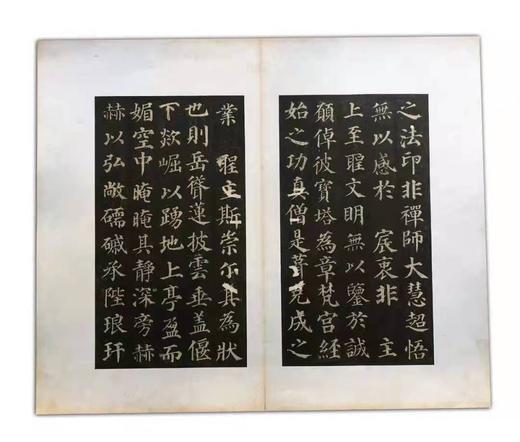 之法印非禪師大慧超悟
無以感於 宸衷非 主
上至聖文明無以鑒於誠
願倬彼寶塔為章梵宮經
始之功真僧是葺克成之
業 聖主斯崇尔其為狀
也則岳聳蓮披雲垂盖偃
下欻崛以踴地上亭盈而
媚空中晻晻其靜深旁赫
赫以弘敞礝磩承陛琅玕